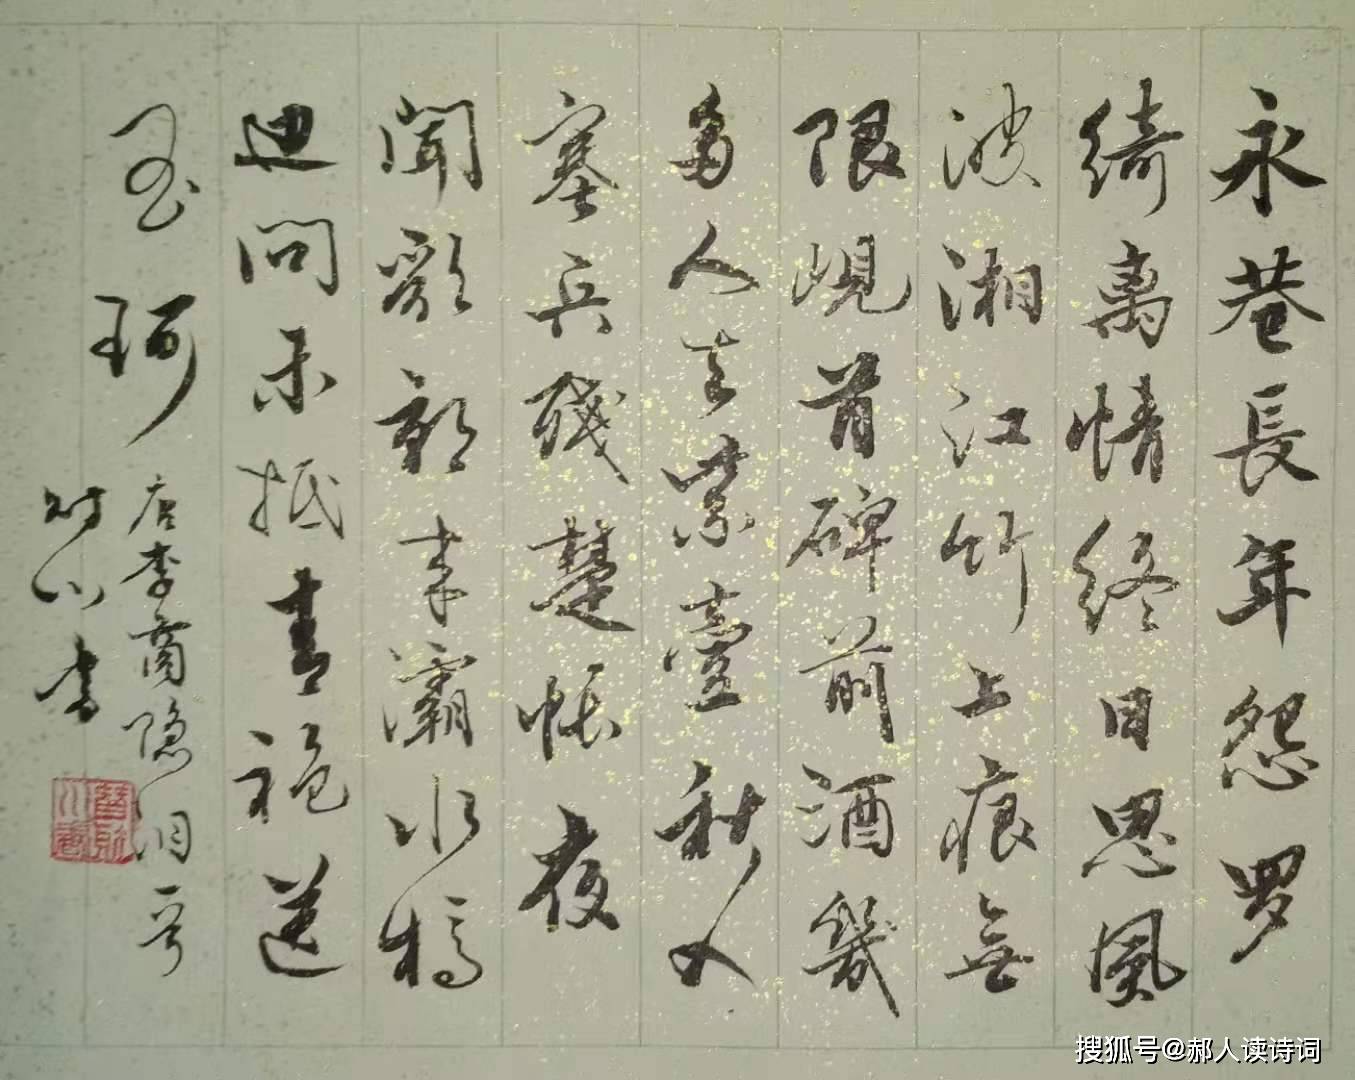 永巷長年怨罗
绮离情终日思風
波湘江竹上痕無
限峴首碑前酒幾
多人去紫臺秋入
塞兵殘楚帐夜
聞歌朝来灞水橋
边问未抵青袍送
玉珂
唐李商隐泪
书
搜狐号@郝人读诗词